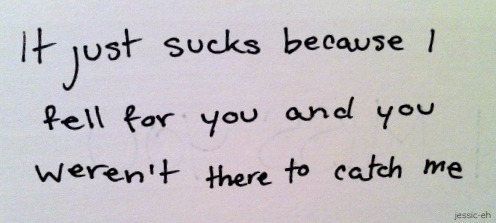 It just sucks because I
fell for you and you
weren't there to catch me
jessic-eh